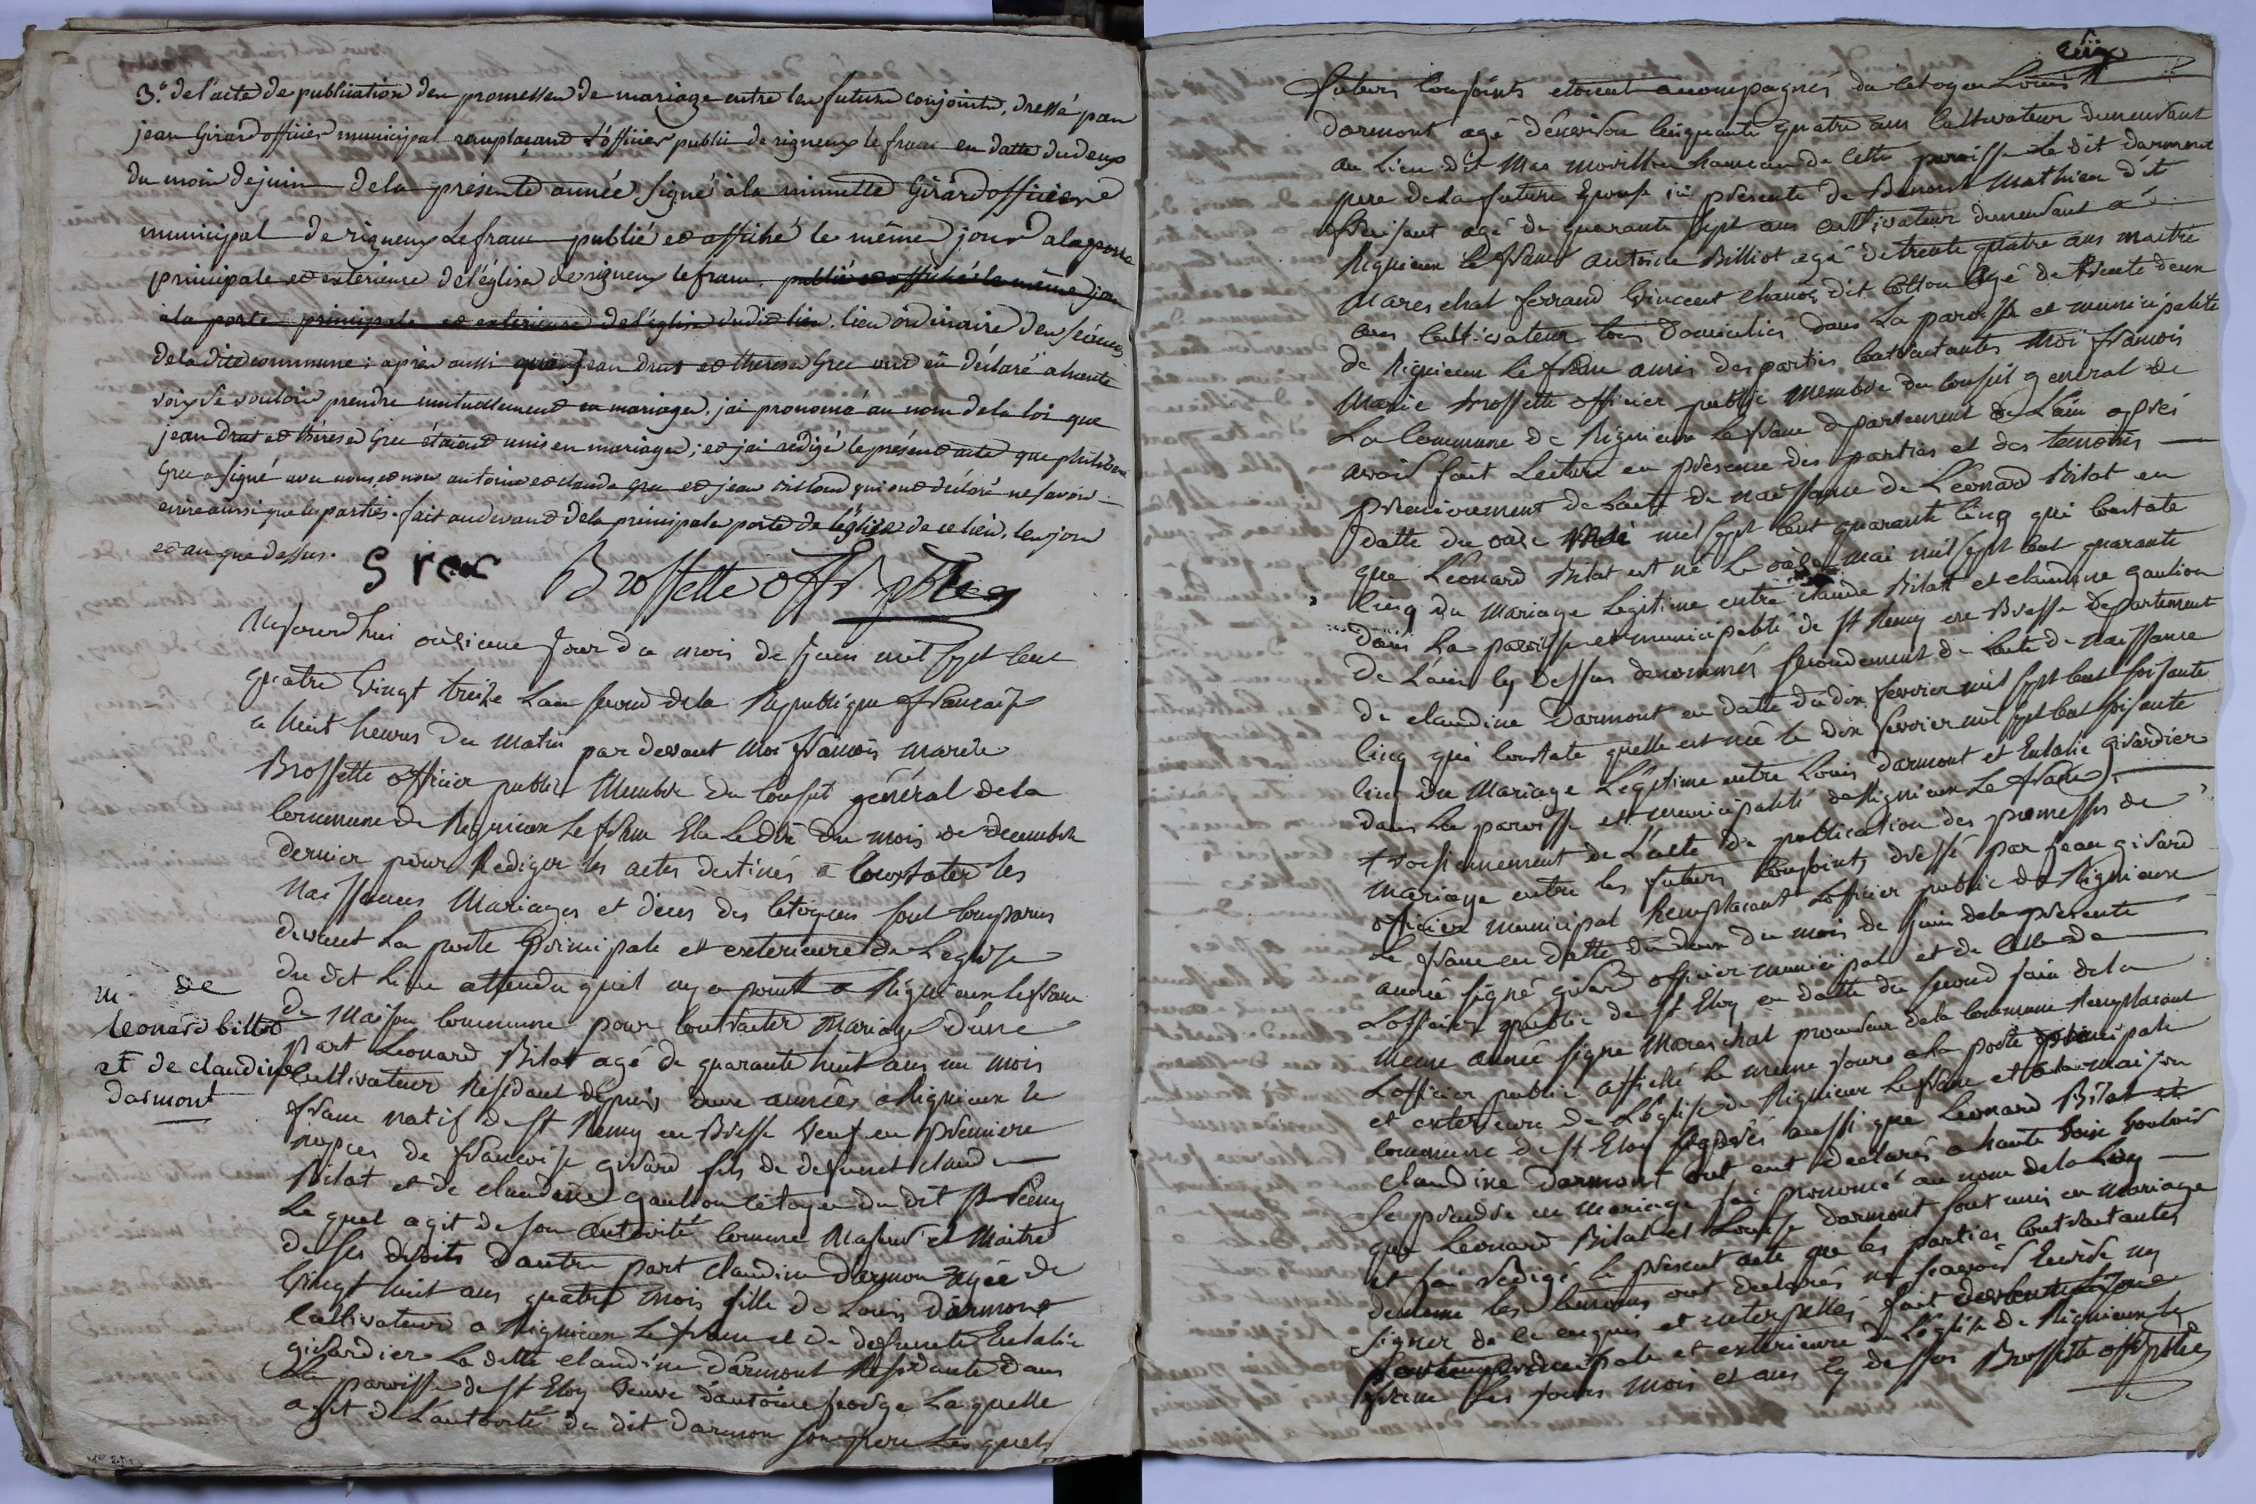 3.º de l'acte de publication des promesses de mariage entre les futurs conjoints, dressé par
jean Girard officier municipal remplaçant l'officier public de rigneux le franc en datte du deux
du mois de juin de la présente année signé à la minutte Girard officier
municipal de rigneux le franc publié et affiché le même jour a la porte
principale et extérieure de l'église de rigneux le franc. publié et affiché le même jour
à la porte principale et extérieure de l'église dudit lieu. lieu ordinaire des séances
de la dite commune ; après aussi que jean drut et thérese Grec ont eu déclaré a haute
voix se vouloir prendre mutuellement en mariage, j'ai prononcé au nom de la loi que
jean drut et thérese Grec étaient unis en mariage ; et j'ai rédigé le présent acte que philibert
Grec a signé avec nous, et non antoine et claude Grec et jean qui ont déclaré ne savoir
écrire ainsi que les parties. fait au devant de la principale porte de l'église de ce lieu, les jour
et an que dessus.
Grec Brossette off. pblic
Aujourd'hui onzieme Jour du mois de Juin mil sept cent
quatre vingt treize L'an second de la Republique francaise
a huit heures du matin par devant moi francois marie
Brossette officier public Membre du Conseil général de la
Commune de Rignieux le franc Elu Le dix du mois de decembre
dernier pour Rediger les actes destinés a Constater les
Naissances Mariages et deces des citoyens sont comparus
devant La porte Principale et exterieure de L'eglise
du dit Lieu attendu quil ny a point a Rignieux le franc
de Maison Commune pour Contracter Mariage d'une
part Leonard Bilat agé de quarante huit ans un mois
Cultivateur Residant depuis deux années a Rignieux le
franc natif de St Remy en Bresse Veuf en premiere
nopces de francoise girard fils de defunct claude
Bilat et de claudine gaution citoyen du dit St Remy
Le quel agit de son autorité comme Majeur et Maitre
de ses droits d'autre part claudine darmont agée de
Vingt huit ans quatre mois fille de Louis darmont
Cultivateur a Rignieux le franc et de defuncte Eulalie
girardier La ditte claudine darmont Residante dans
La paroisse de St Eloy Veuve d'antoine george La quelle
agit de L'autorité du dit darmon son pere Les quels
m. de
Leonard billat
et de claudine
darmont
futurs Conjoints etoient accompagnés du citoyen Louis
darmont agé d'environ Cinquante quatre ans Cultivateur demeurant
au Lieu dit Mas hameau de cette paroisse Le dit darmont
pere de La future Epouse ici présente de Benoit Mathieu dit
agé de quarante sept ans cultivateur demeurant a
Rignieux le franc antoine Billiot agé de trente quatre ans maitre
mareschal ferrand Vincent dit Cotton agé de trente deux
ans Cultivateur tous Domiciliés dans La paroisse et municipalité
de Rignieux le franc amis des parties Contractantes Moi francois
Marie Brossette officier public membre du conseil general de
La Commune de Rignieux le franc departement de L'ain après
avoir fait Lecture en présence des parties et des temoins
premierement de L'acte de naissance de Léonard Bilat en
datte du onze Mai mil sept cent quarante cinq qui Constate
que Léonard Bilat est né Le onze mai mil sept cent quarante
cinq du Mariage Legitime entre claude Bilat et claudine gaution
dans La paroisse et municipalité de St Remy en Bresse departement
de L'ain cy dessus denommés secondement de L'acte de naissance
de claudine Darmont en datte du dix fevrier mil sept cent soisante
cinq qui Constate quelle est née le dix fevrier mil sept cent soisante
cinq du Mariage Légitime entre Louis darmont et Eulalie girardier
dans La paroisse et municipalité de Rignieux Le franc
troisiemement de L'acte de publication des promesses de
mariage entre les futurs Conjoints dressé par jean girard
officier municipal Remplacant L'officier public de Rignieux
le franc en datte du deux du mois de juin de la présente
année signé girard officier municipal et de Celle de
L'officier public de St Eloy en datte du second juin de la
meme année signé Mareschal procureur de la Commune Remplacant
L'officier public affiché le meme jour a La porte principale
et exterieure de L'église de Rignieux le franc et a la maison
commune de St Eloy après aussi que Leonard Bilat et
claudine Darmont ont eut declarés a haute voix Vouloir
Se prendre en mariage j'ai prononcé au nom de la Loy
que Leonard Bilat et Louise darmont sont unis en mariage
et j'ai rédigé le présent acte que les parties Contractantes
de meme les temoins ont declarés ne scavoir Ecrire ny
signer de ce enquis et interpellés fait devant la
porte principale et exterieure de L'église de Rignieux le
franc Les jours mois et ans cy dessus Brossette off. pblic